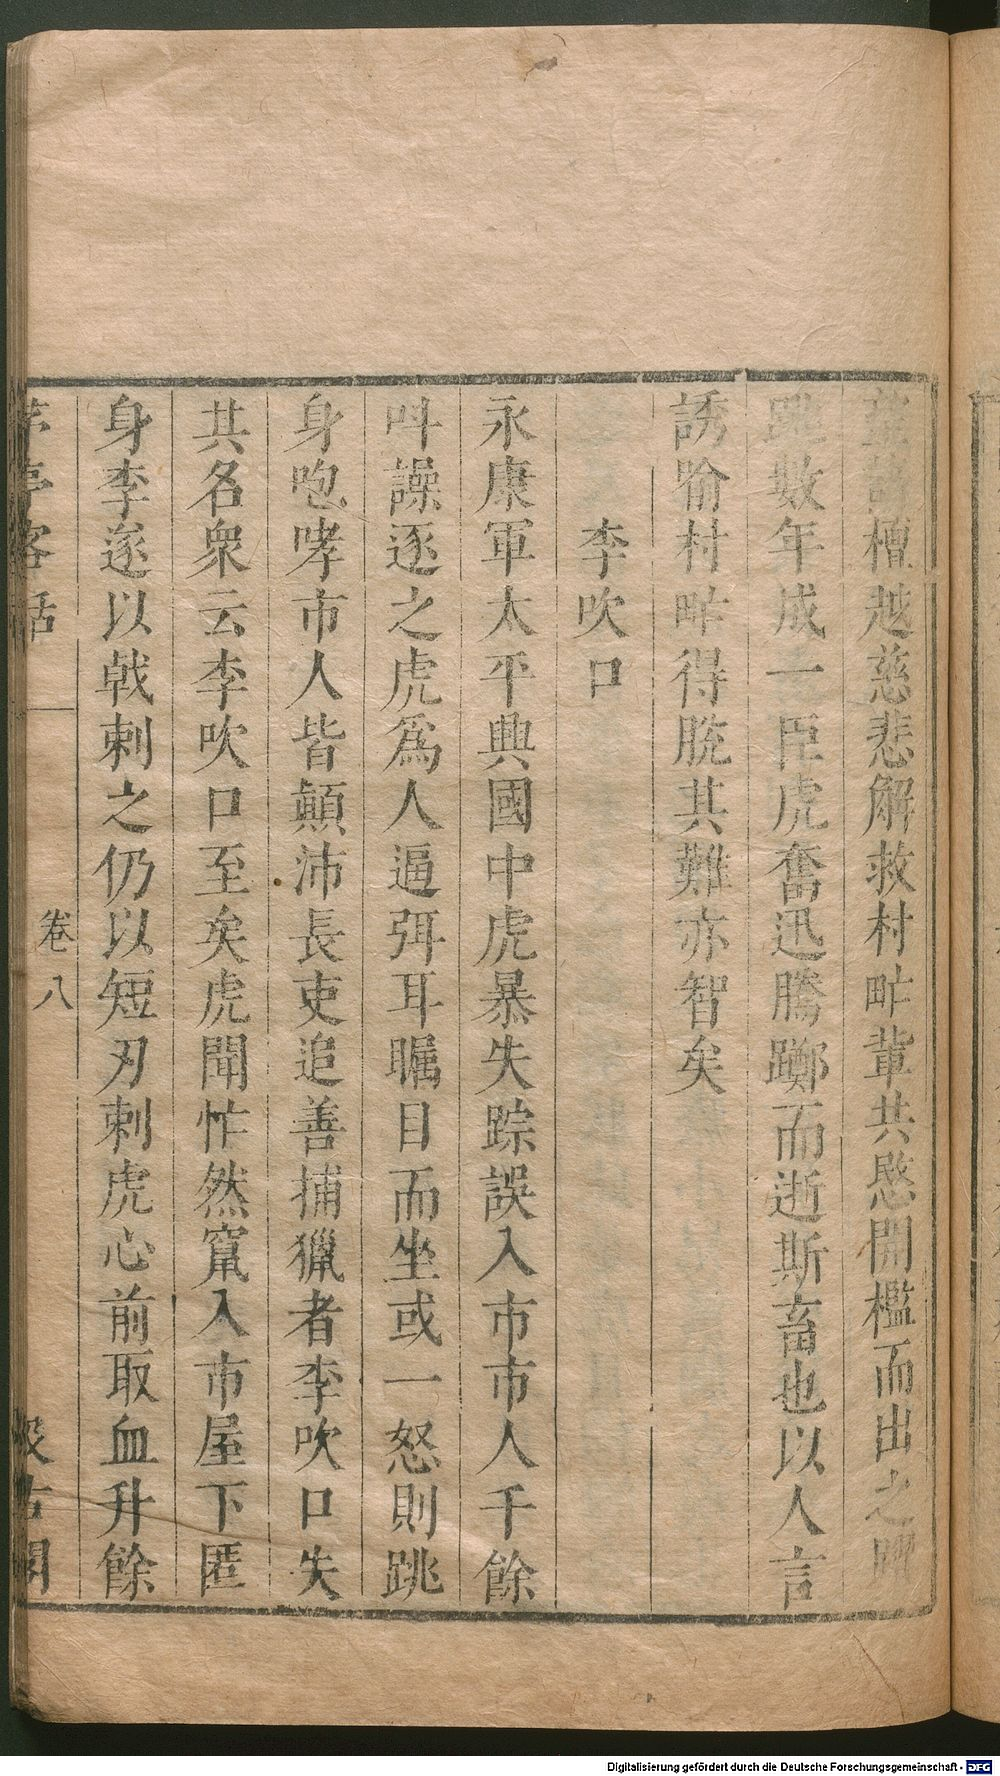 檀越慈悲解救村甿輩共愍開檻而出之
跳數年成一巨虎奮迅騰躑而逝斯畜也以人言
誘喻村甿得脫其難亦智矣
李吹口
永康軍太平興國中虎暴失踪誤入市市人千餘
呌譟逐之虎爲人逼弭耳矚目而坐或一怒則跳
身咆哮市人皆顛沛長吏追善捕獵者李吹口失
其名衆云李吹口至矣虎聞怍然竄入市屋下匿
身李遂以戟刺之仍以短刃刺虎心前取血升餘
茅亭客話 卷八 汲古閣
Digitalisierung gefördert durch die Deutsche Forschungsgemeinschaft - DFG